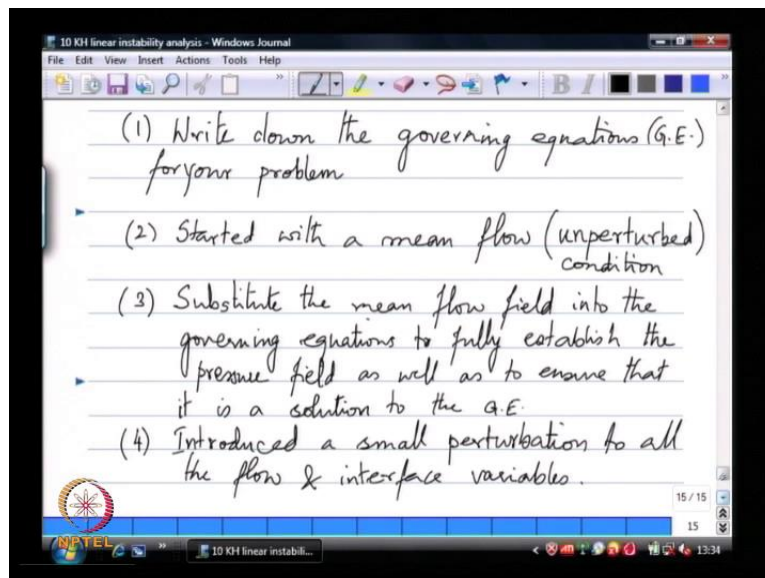 10 KH linear instability analysis - Windows Journal
File Edit View Insert Actions Tools Help
(1) Write down the governing equations (G.E.)
for your problem
(2) Started with a mean flow (unperturbed)
condition
(3) Substitute the mean flow field into the
governing equations to fully establish the
pressure field as well as to ensure that
it is a solution to the G.E.
(4) Introduced a small perturbation to all
the flow & interface variables.
15 / 15
15
NPTEL
10 KH linear instabili...
13:34